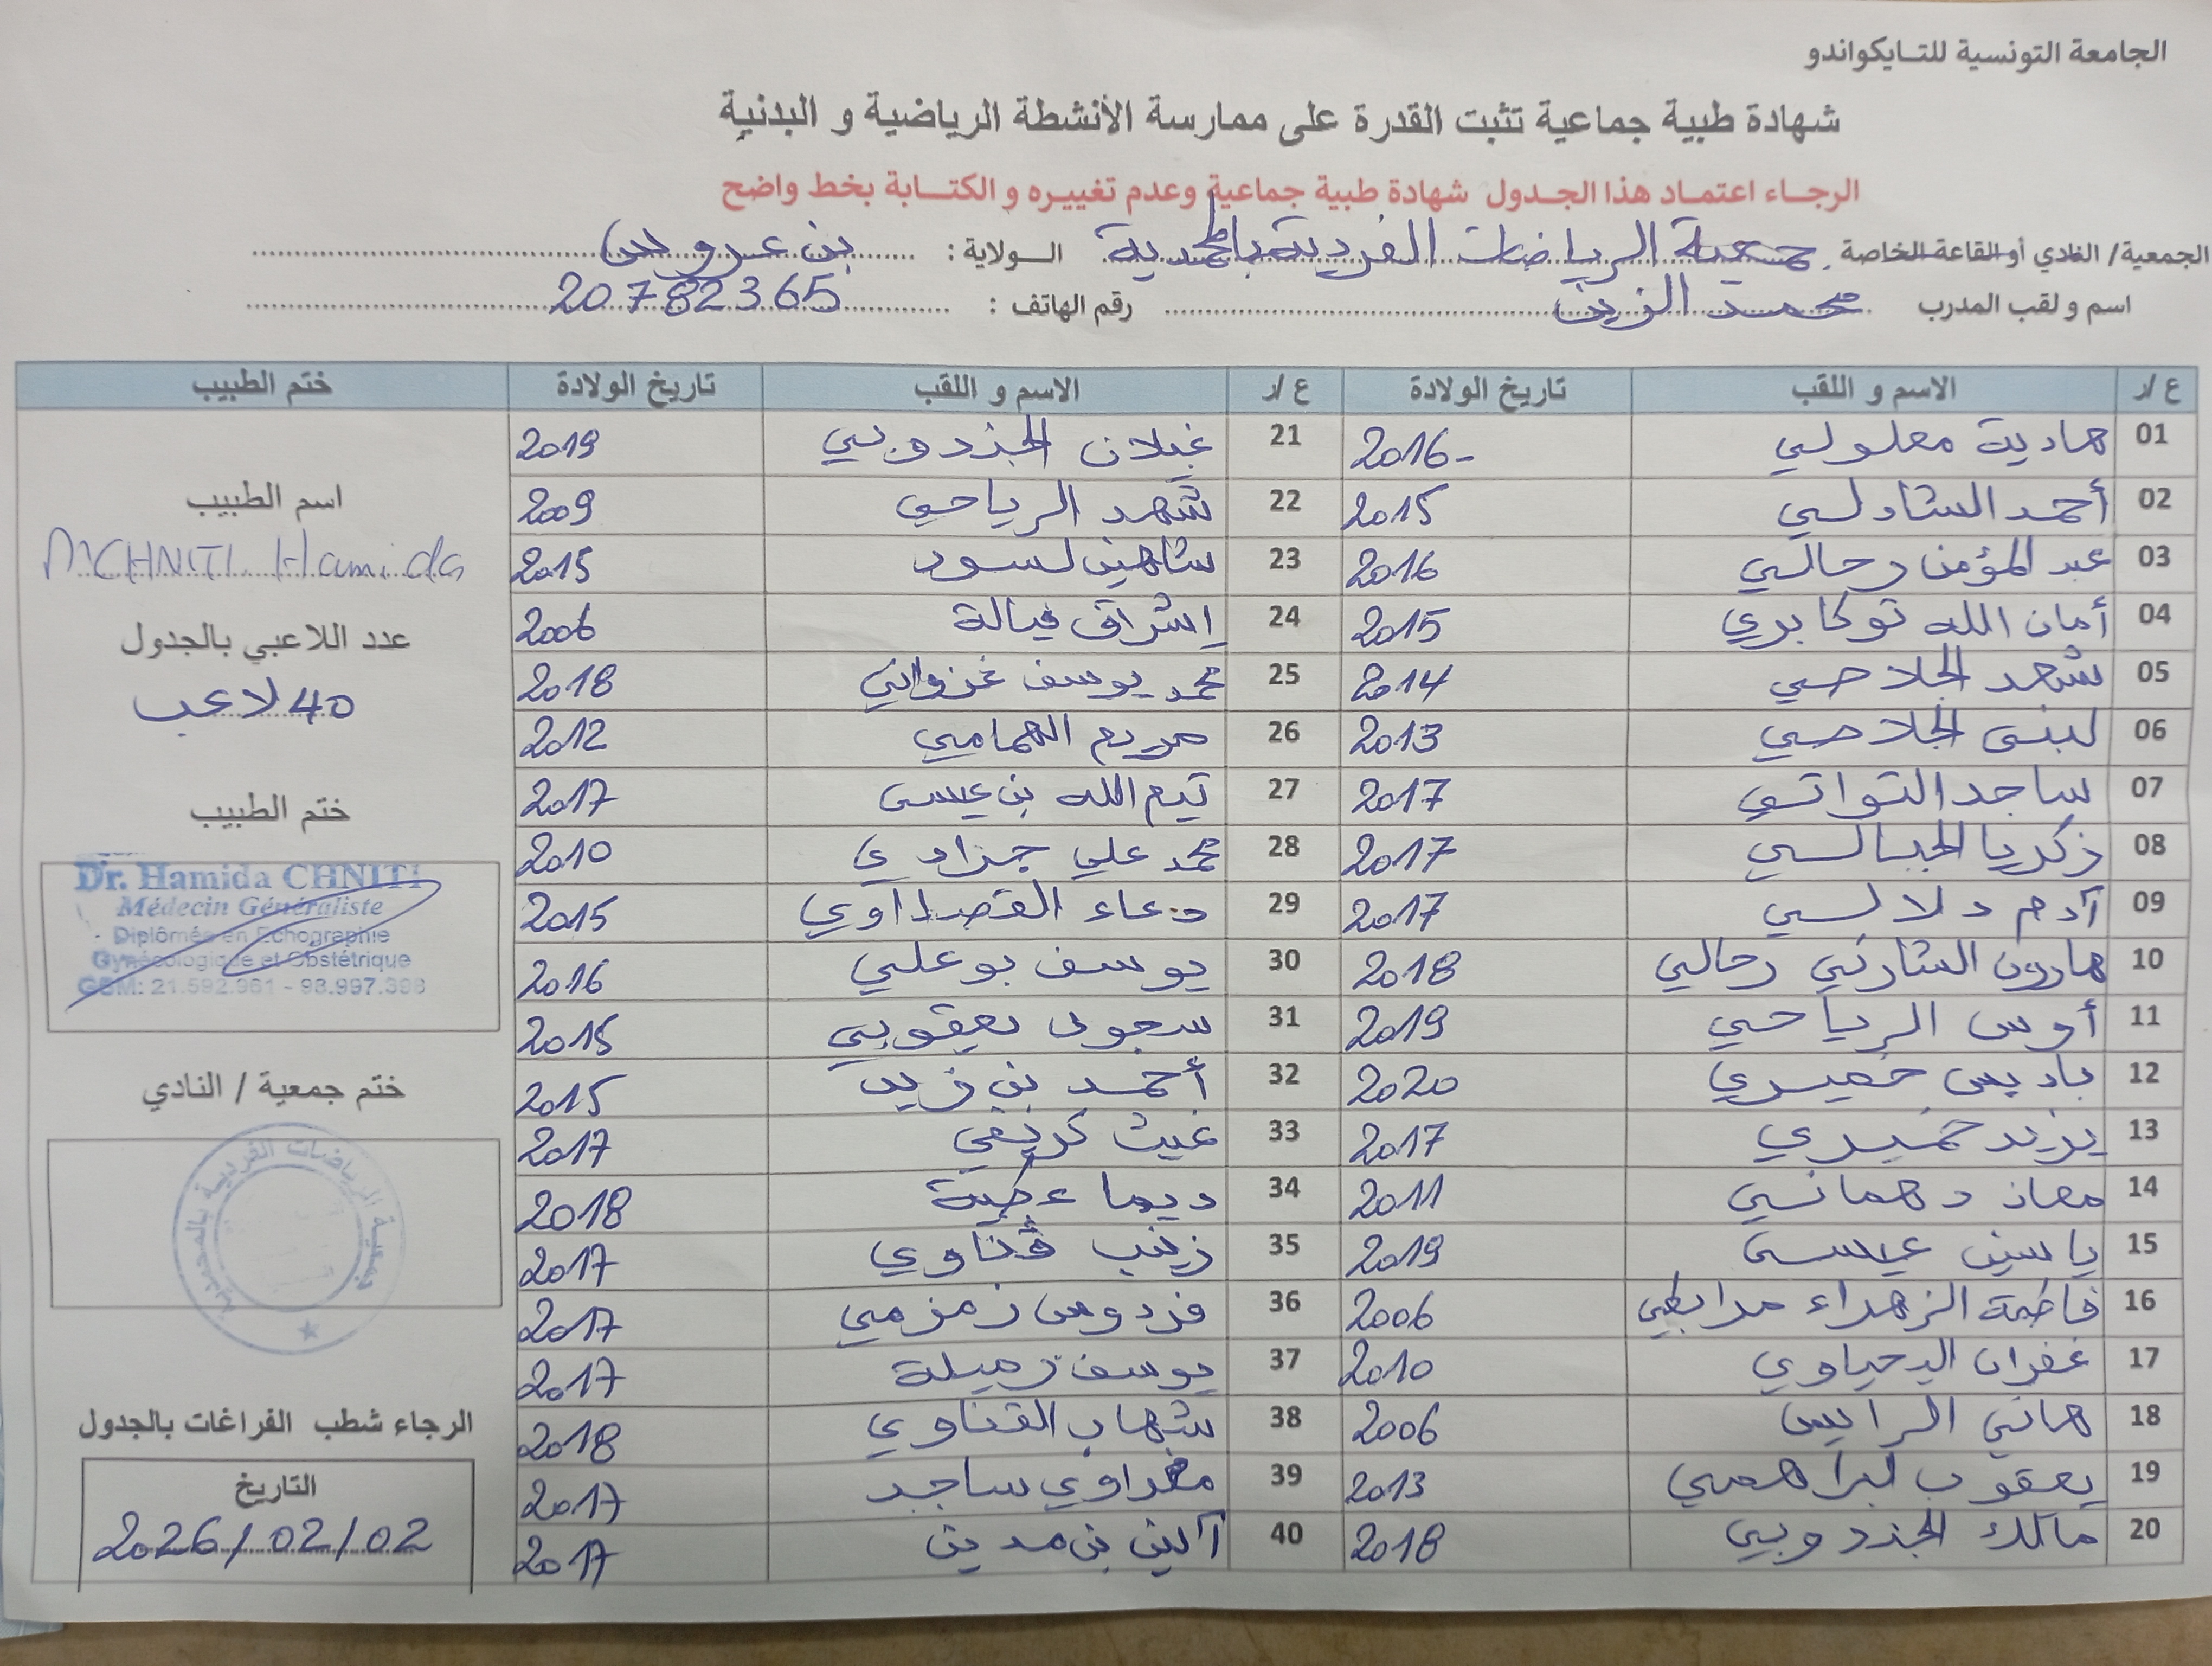 الجامعة التونسية للتــايكواندو
شهادة طبية جماعية تثبت القدرة على ممارسة الأنشطة الرياضية و البدنية
الرجــاء اعتمـاد هذا الجـدول شهادة طبية جماعية وعدم تغييـره و الكتــابة بخط واضح
الجمعية/ النادي أو القاعة الخاصة جمعية الرياضات الفردية بالمحمدية الــولاية : بن عروس
اسم و لقب المدرب محمد الزين رقم الهاتف : 20782365
ع /ر الاسم و اللقب تاريخ الولادة ع /ر الاسم و اللقب تاريخ الولادة ختم الطبيب
01 هادية معلولي 2016- 21 غيلان الجندوبي 2019
02 أحمد الشاذلي 2015 22 شهد الرياحي 2009
03 عبد المؤمن رحالي 2016 23 شاهين لسود 2015
04 أمان الله توكابري 2015 24 إشراق فيالة 2006
05 شهد الجلاصي 2014 25 محمد يوسف غزواني 2018
06 لبنى الجلاصي 2013 26 مريم الهمامي 2012
07 ساجد التواتي 2017 27 تيم الله بن عيسى 2017
08 زكريا الجبالي 2017 28 محمد علي جزادي 2010
09 آدم دلالي 2017 29 دعاء القصداوي 2015
10 هارون الشارني رحالي 2018 30 يوسف بوعلي 2016
11 أوس الرياحي 2019 31 سجود يعقوبي 2015
12 باديس خميري 2020 32 أحمد بن زيد 2015
13 يزيد خميري 2017 33 غيث كريفي 2017
14 معاذ دهماني 2011 34 ديما 2018
15 ياسين عيسى 2019 35 زينب ڨناوي 2017
16 فاطمة الزهراء مرابطي 2006 36 فردوس زمزمي 2017
17 غفران اليحياوي 2010 37 يوسف زميلة 2017
18 هاني الرايس 2006 38 شهاب القناوي 2018
19 يعقوب لبراهمي 2013 39 مغراوي ساجد 2017
20 مالك الجندوبي 2018 40 آلين بن مدين 2017
اسم الطبيب
Dr CHNITI Hamida
عدد اللاعبي بالجدول
40 لاعب
ختم الطبيب
Dr. Hamida CHNITI
Médecin Généraliste
Diplômée en Echographie
Gynécologique et Obstétrique
GSM: 21.592.961 - 98.997.398
ختم جمعية / النادي
جمعية الرياضات الفردية بالمحمدية
الرجاء شطب الفراغات بالجدول
التاريخ
2026/02/02